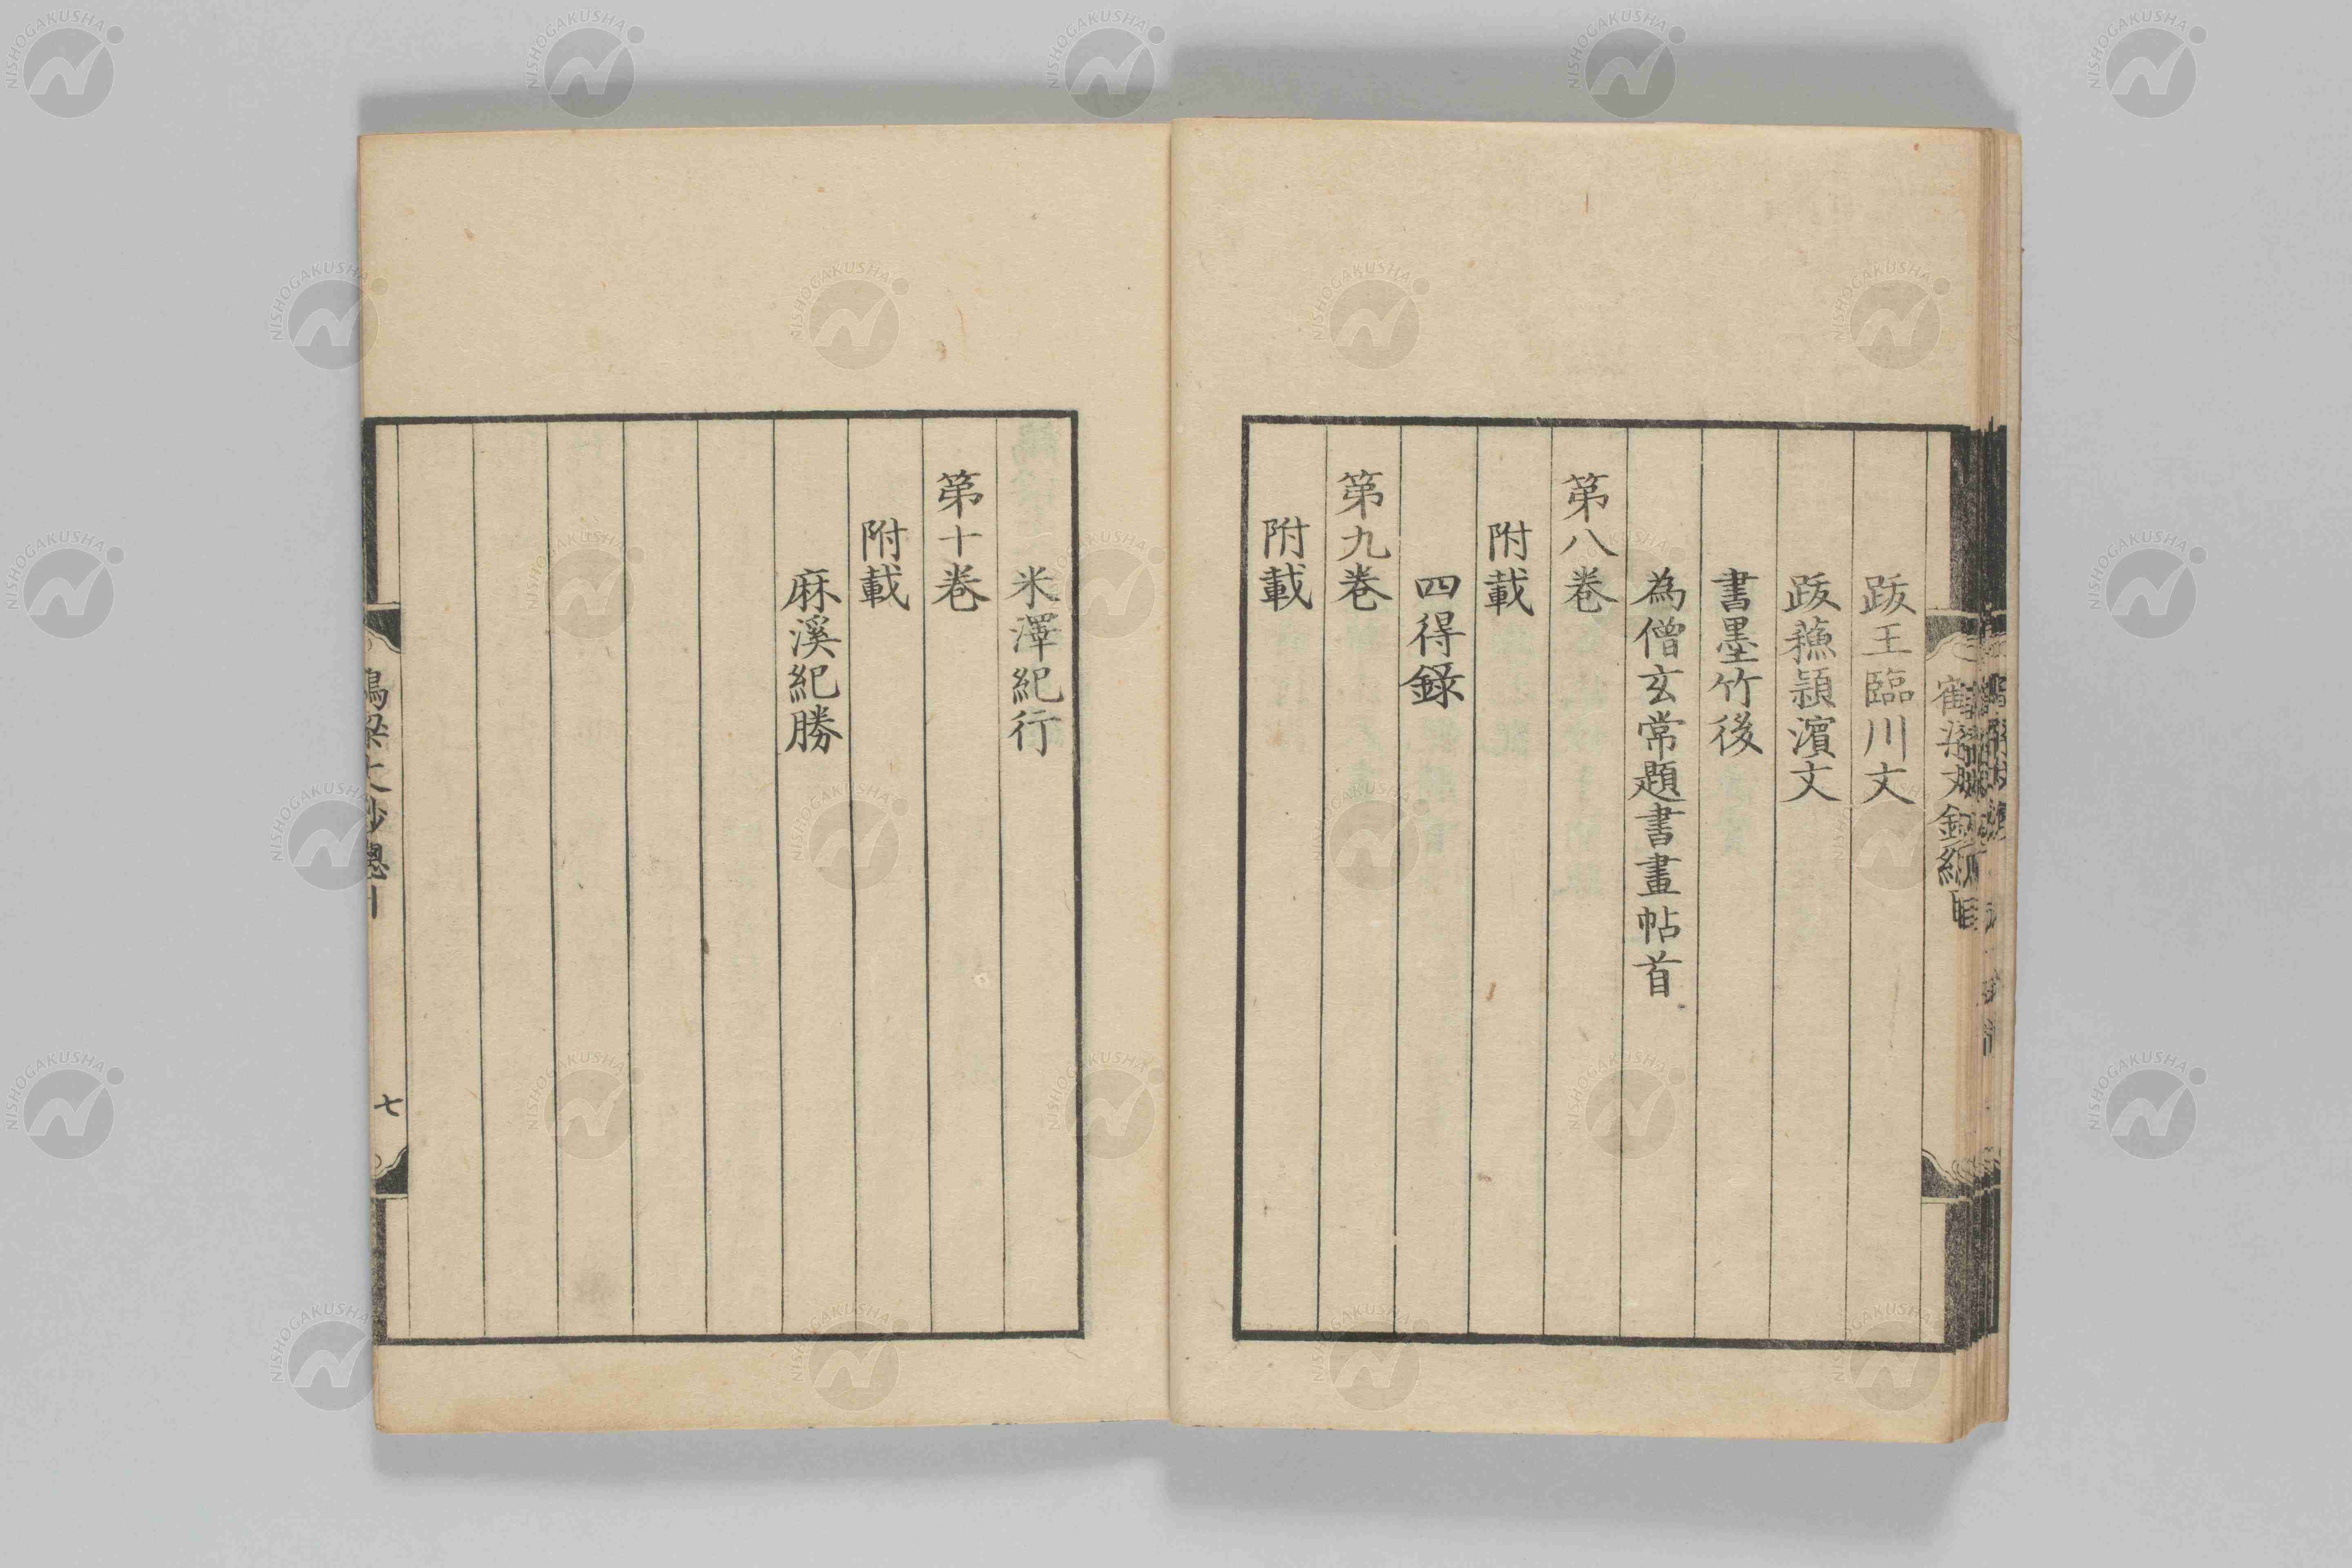 跋王臨川文
跋蘓潁濱文
書墨竹後
為僧玄常題書畫帖首
第八卷
附載
四得錄
第九卷
附載
米澤紀行
第十卷
附載
麻溪紀勝
七
NISHOGAKUSHA